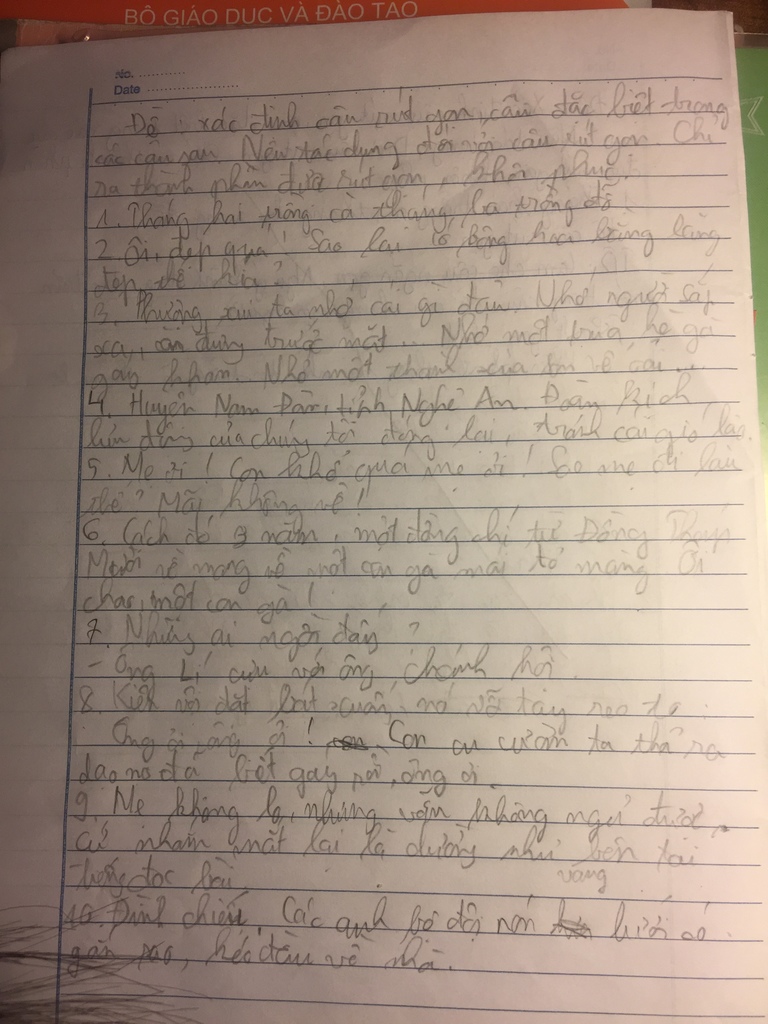 BỘ GIÁO DỤC VÀ ĐÀO TẠO
No.
Date
Đề : xác định câu rút gọn, câu đặc biệt trong
các câu sau. Nêu tác dụng đối với câu rút gọn. Chỉ
ra thành phần được rút gọn, khôi phục.
1. Tháng hai trồng cà, tháng ba trồng đỗ
2. Ôi, đẹp quá! Sao lại có bông hoa bằng lăng
đẹp thế kia?
3. Phượng xui ta nhớ cái gì đâu. Nhớ người sắp
xa, còn đứng trước mặt... Nhớ một trưa hè gà
gáy khan. Nhớ một thành xưa son vẻ oai...
4. Huyện Nam Đàn, tỉnh Nghệ An. Đoàn kịch
lưu động của chúng tôi đóng lại, tránh cái gió lào.
5. Mẹ ơi! Con khổ quá mẹ ơi! Sao mẹ đi lâu
thế? Mãi không về!
6. Cách đó 3 năm, một đồng chí từ Đồng Tháp
Mười về mang về một con gà mái tơ màng Ôi
chao, một con gà!
7. Những ai ngồi đấy?
- Ông Lí cựu với ông chánh hội
8. Kiến vội đặt bát xuống, nó vỗ tay reo to:
Ông ơi, ông ơi! Con cu cườm ta thả ra
dạo nọ đã biết gáy rồi, ông ơi.
9. Mẹ không lo, nhưng vẫn không ngủ được.
cứ nhắm mắt lại là dường như bên tai
vang
tiếng đọc bài
10. Đình chiến. Các anh bộ đội nón lưới có
gắn sao, kéo đầu về nhà.